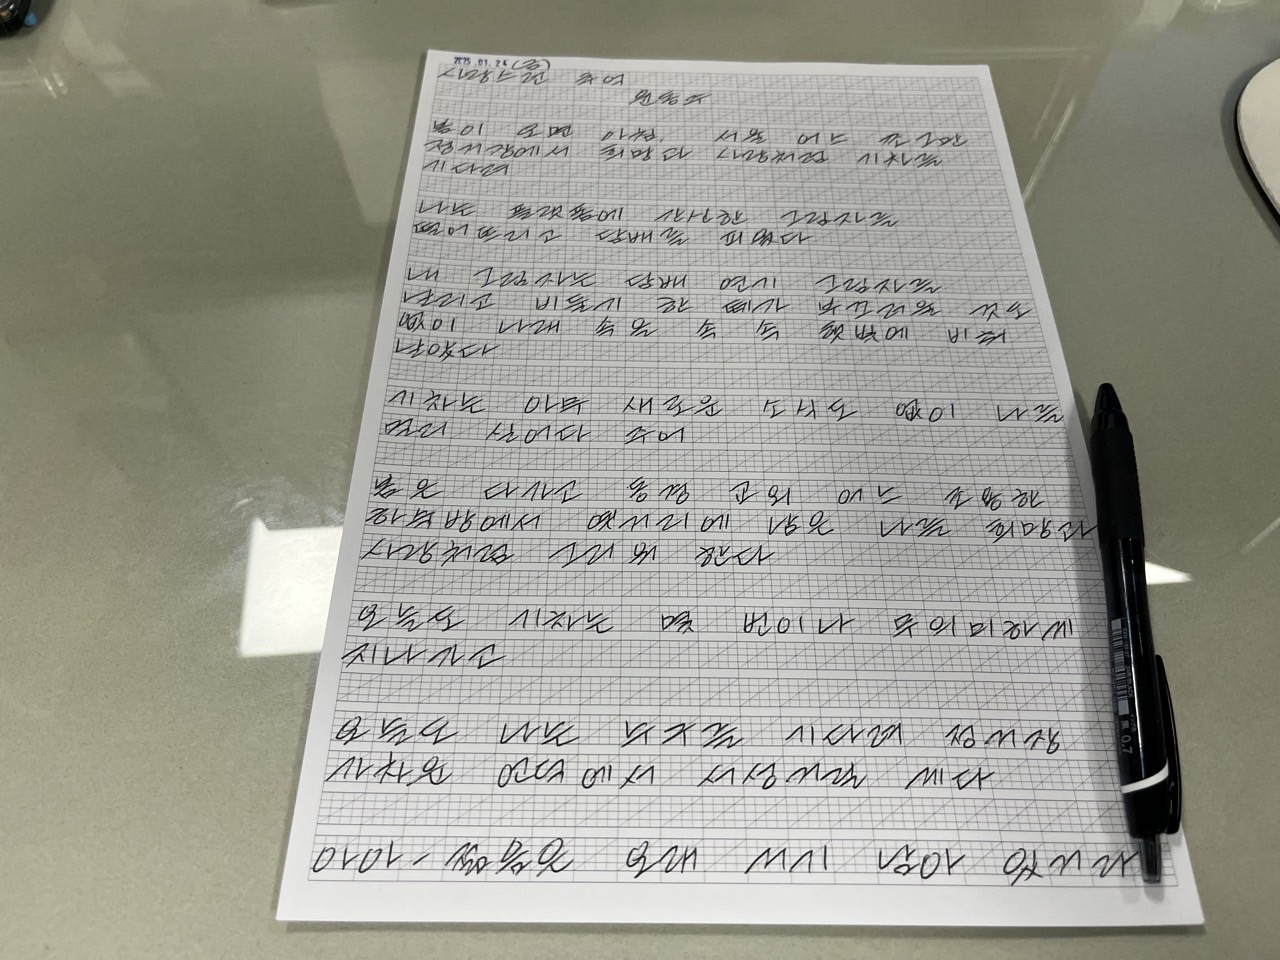 2025.01.24 (금)
사랑스런 추억
윤동주
봄이 오던 아침, 서울 어느 조그만
정거장에서 희망과 사랑처럼 기차를
기다려
나는 플랫폼에 간신한 그림자를
떨어뜨리고 담배를 피웠다
내 그림자는 담배 연기 그림자를
날리고 비둘기 한 떼가 부끄러울 것도
없이 나래 속을 속 속 햇빛에 비춰
날았다
기차는 아무 새로운 소식도 없이 나를
멀리 실어다 주어
봄은 다가고 동경 교외 어느 조용한
하숙방에서 옛거리에 남은 나를 희망과
사랑처럼 그리워 한다
오늘도 기차는 몇 번이나 무의미하게
지나가고
오늘도 나는 누구를 기다려 정거장
가차운 언덕에서 서성거릴 게다
아아 - 젊음은 오래 거기 남아 있거라
0.7